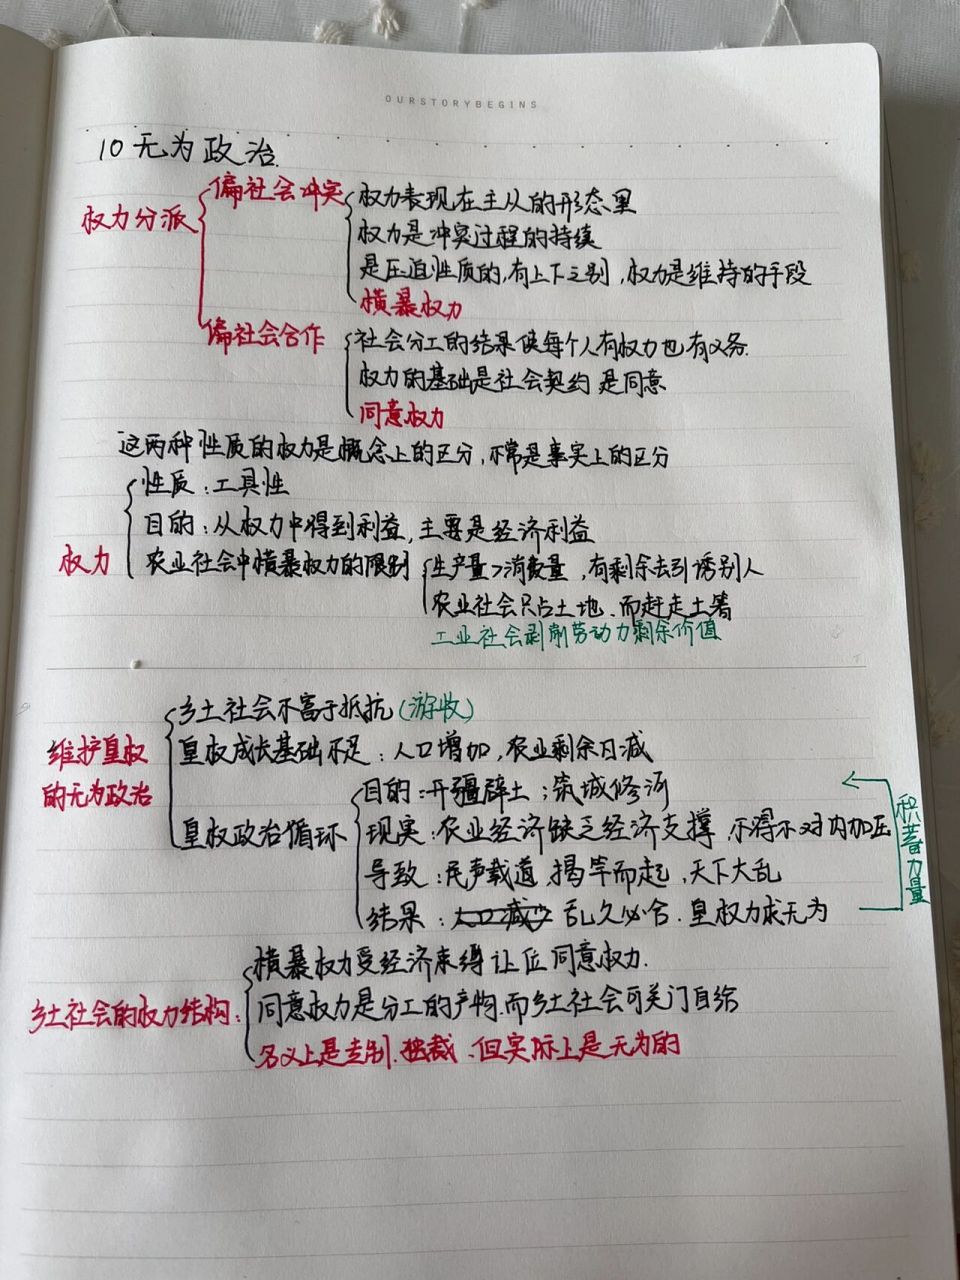 OURSTORYBEGINS
10 无为政治
权力分派
偏社会冲突
权力表现在主从的形态里
权力是冲突过程的持续
是压迫性质的,有上下之别,权力是维持的手段
横暴权力
偏社会合作
社会分工的结果使每个人有权力也有义务.
权力的基础是社会契约 是同意
同意权力
这两种性质的权力是概念上的区分,不常是事实上的区分
权力
性质:工具性
目的:从权力中得到利益,主要是经济利益
农业社会中横暴权力的限制
生产量>消费量,有剩余去引诱别人
农业社会只占土地、而赶走土著
工业社会剥削劳动力剩余价值
维护皇权
的无为政治
乡土社会不富于抵抗(游牧)
皇权成长基础不足:人口增加,农业剩余日减
皇权政治循环
目的:开疆辟土;筑城修河
现实:农业经济缺乏经济支撑,不得不对内加压
导致:民声载道,揭竿而起,天下大乱
结果:乱久必合.皇权力求无为
积蓄力量
乡土社会的权力结构:
横暴权力受经济束缚让位同意权力.
同意权力是分工的产物,而乡土社会可关门自给
名义上是专制、独裁、但实际上是无为的